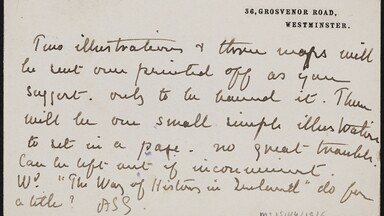 36, GROSVENOR ROAD,
WESTMINSTER.
Two illustrations & three maps will
be sent one printed off as you
suggest. only to be bound it. There
will be one small simple illustration
to set in a page. no great trouble.
Can be left out if inconvenient.
Wd. "The Way of History in England" do for
a title? ASG.